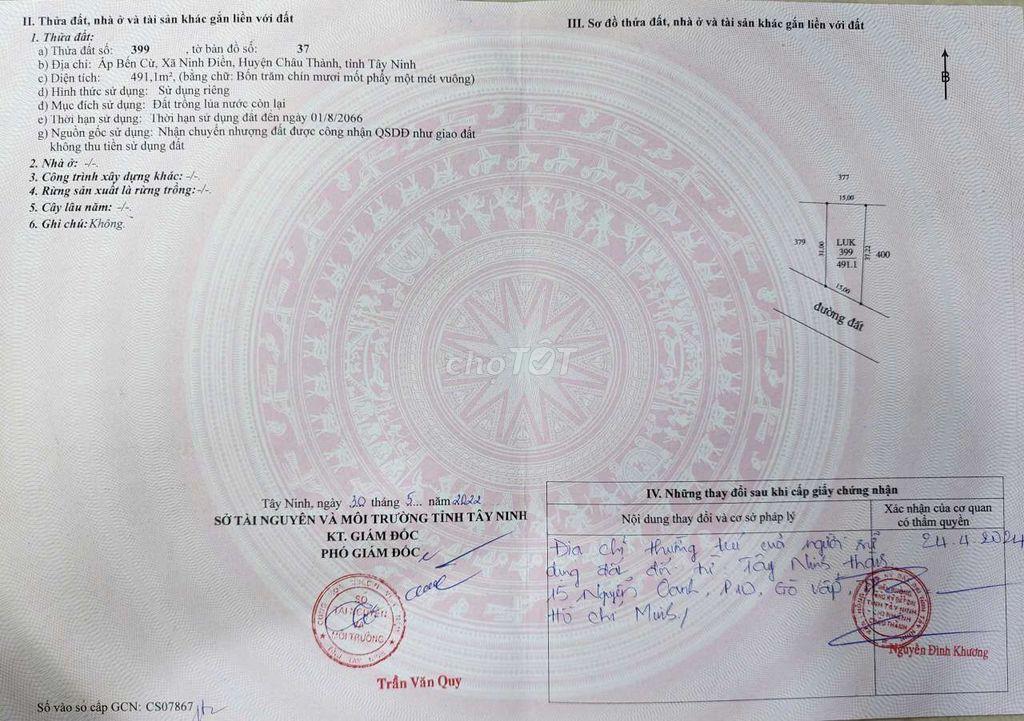 II. Thửa đất, nhà ở và tài sản khác gắn liền với đất
1. Thửa đất:
a) Thửa đất số: 399 , tờ bản đồ số: 37
b) Địa chỉ: Ấp Bến Cừ, Xã Ninh Điền, Huyện Châu Thành, tỉnh Tây Ninh
c) Diện tích: 491,1m², (bằng chữ: Bốn trăm chín mươi mốt phẩy một mét vuông)
d) Hình thức sử dụng: Sử dụng riêng
đ) Mục đích sử dụng: Đất trồng lúa nước còn lại
e) Thời hạn sử dụng: Thời hạn sử dụng đất đến ngày 01/8/2066
g) Nguồn gốc sử dụng: Nhận chuyển nhượng đất được công nhận QSDĐ như giao đất
không thu tiền sử dụng đất
2. Nhà ở: -/-.
3. Công trình xây dựng khác: -/-.
4. Rừng sản xuất là rừng trồng:-/-.
5. Cây lâu năm: -/-.
6. Ghi chú: Không.
III. Sơ đồ thửa đất, nhà ở và tài sản khác gắn liền với đất
B
377
15,00
379
31,00
LUK
399
491.1
37,22
400
15,00
đường đất
choTỐT
Tây Ninh, ngày 30 tháng 5... năm 2022
SỞ TÀI NGUYÊN VÀ MÔI TRƯỜNG TỈNH TÂY NINH
KT. GIÁM ĐỐC
PHÓ GIÁM ĐỐC
SỞ
TÀI NGUYÊN
VÀ
MÔI TRƯỜNG
Trần Văn Quy
IV. Những thay đổi sau khi cấp giấy chứng nhận
Nội dung thay đổi và cơ sở pháp lý
Xác nhận của cơ quan
có thẩm quyền
Địa chỉ thường trú của người sử
dụng đất đổi từ Tây Ninh thành
15 Nguyễn Oanh, P10, Gò Vấp,
Hồ Chí Minh./
24.4.2024
TỈNH TÂY NINH
CHI NHÁNH
CHÂU THÀNH
Nguyễn Đình Khương
Số vào sổ cấp GCN: CS07867